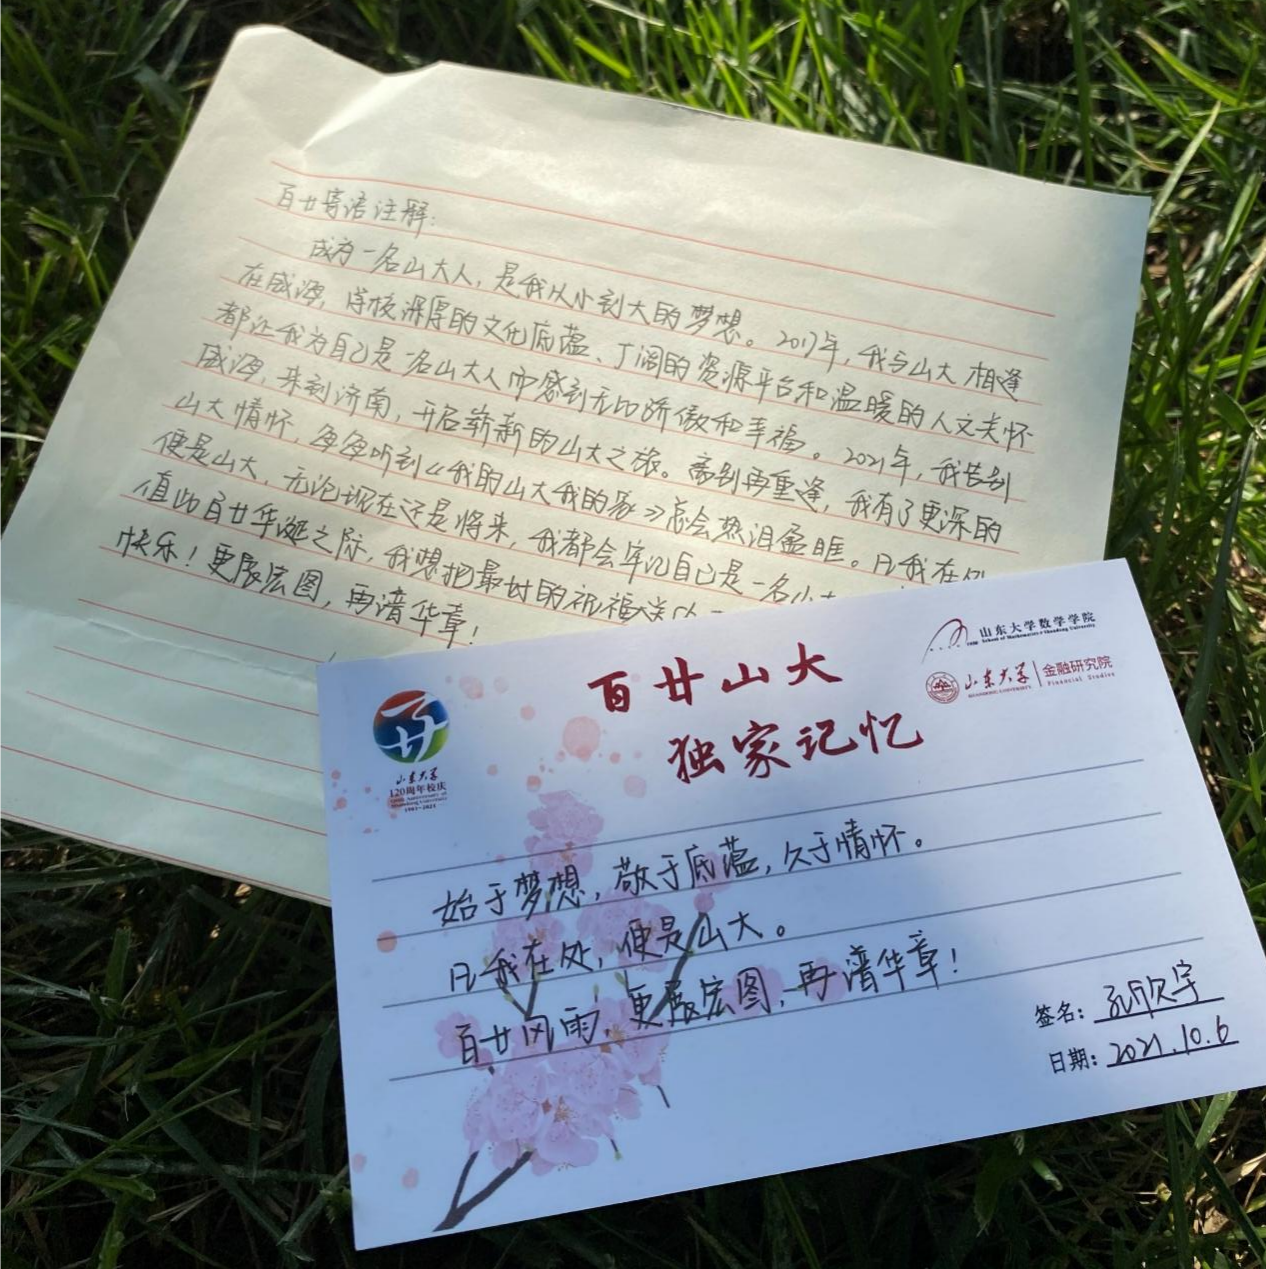 百廿寄语注解：
成为一名山大人，是我从小到大的梦想。2017年，我与山大相逢
在威海，学校深厚的文化底蕴、广阔的资源平台和温暖的人文关怀
都让我为自己是一名山大人而感到无比骄傲和幸福。2021年，我告别
威海，来到济南，开启崭新的山大之旅。离别再重逢，我有了更深的
山大情怀，每每听到《我的山大我的家》总会热泪盈眶。凡我在处
便是山大，无论现在还是将来，我都会牢记自己是一名山大
值此百廿华诞之际，我想把最好的祝福送
快乐！更展宏图，再谱华章！
百廿山大
独家记忆
山东大学数学学院
School of Mathematics Shandong University
山东大学 金融研究院
SHANDONG UNIVERSITY Financial Studies
百廿
山东大学
120周年校庆
120th Anniversary of
Shandong University
1901-2021
始于梦想，敬于底蕴，久于情怀。
凡我在处，便是山大。
百廿风雨，更展宏图，再谱华章！
签名：孔欣宇
日期：2021.10.6